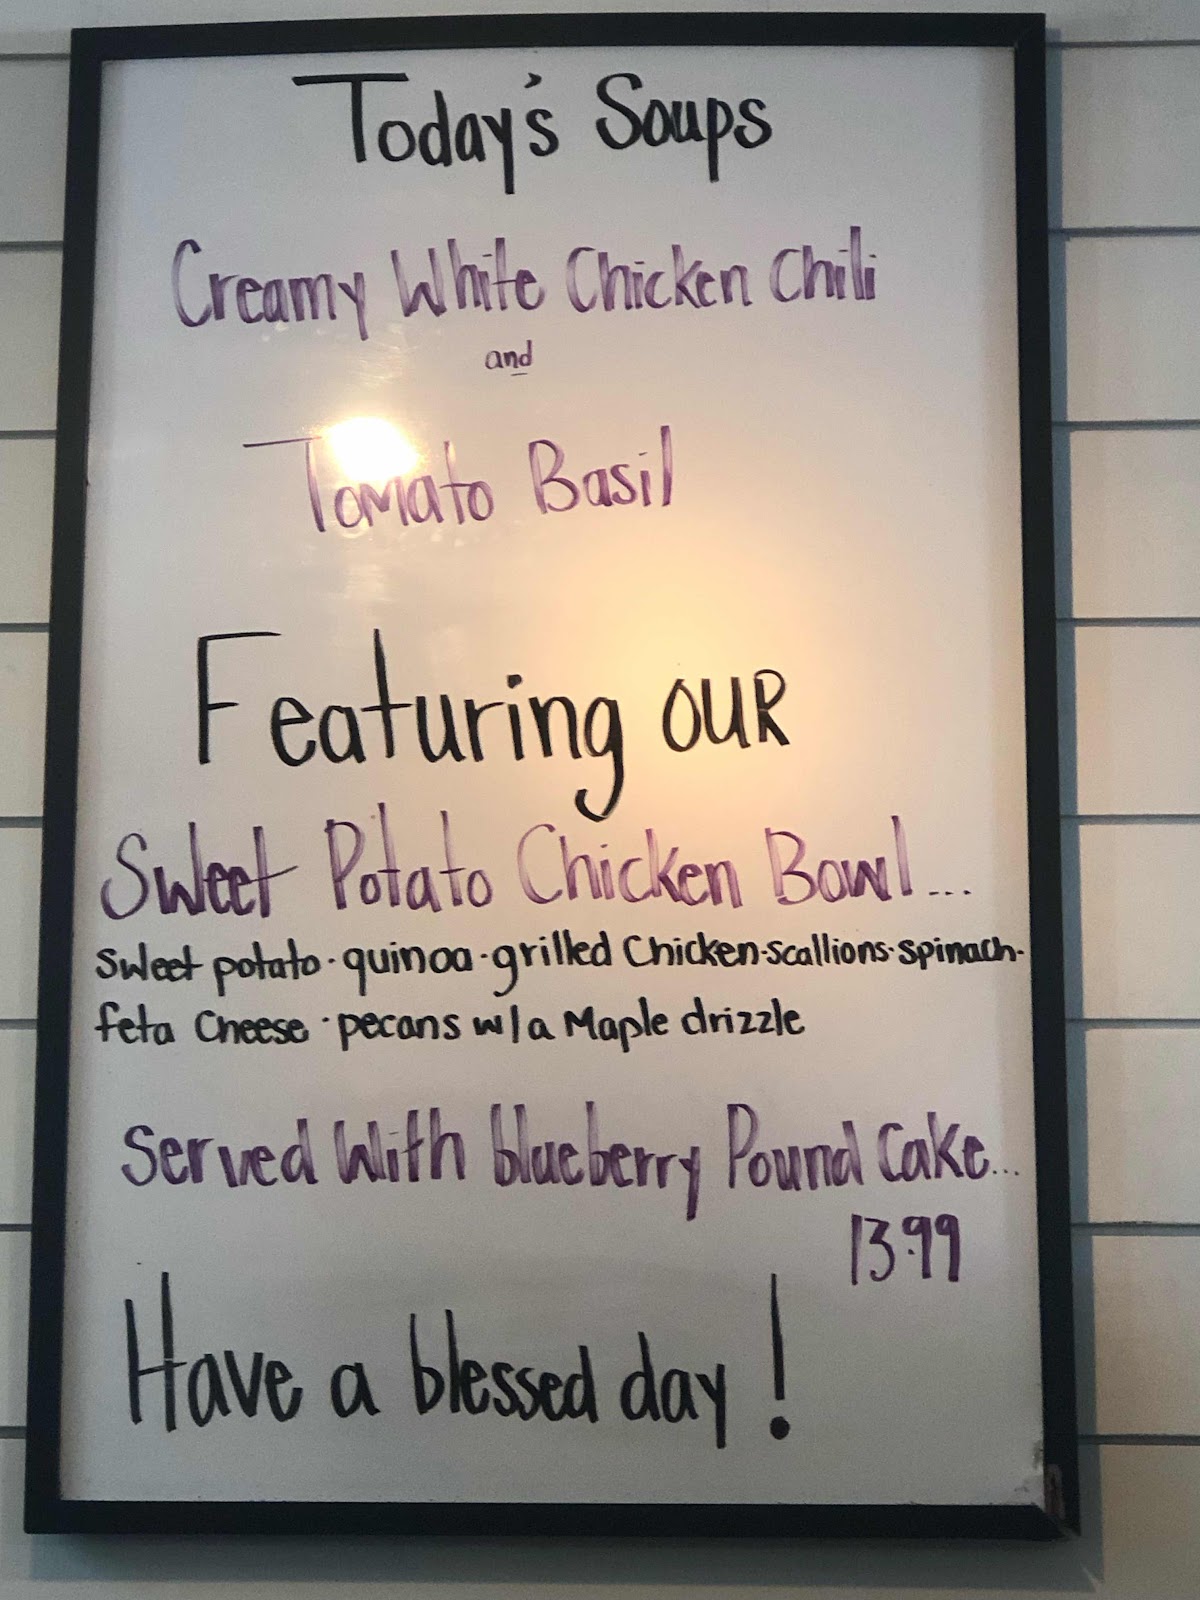 Today's Soups
Creamy White Chicken Chili
and
Tomato Basil
Featuring OUR
Sweet Potato Chicken Bowl...
Sweet potato · quinoa · grilled Chicken · scallions · spinach ·
feta Cheese · pecans w/a Maple drizzle
Served With blueberry Pound Cake...
13.99
Have a blessed day!